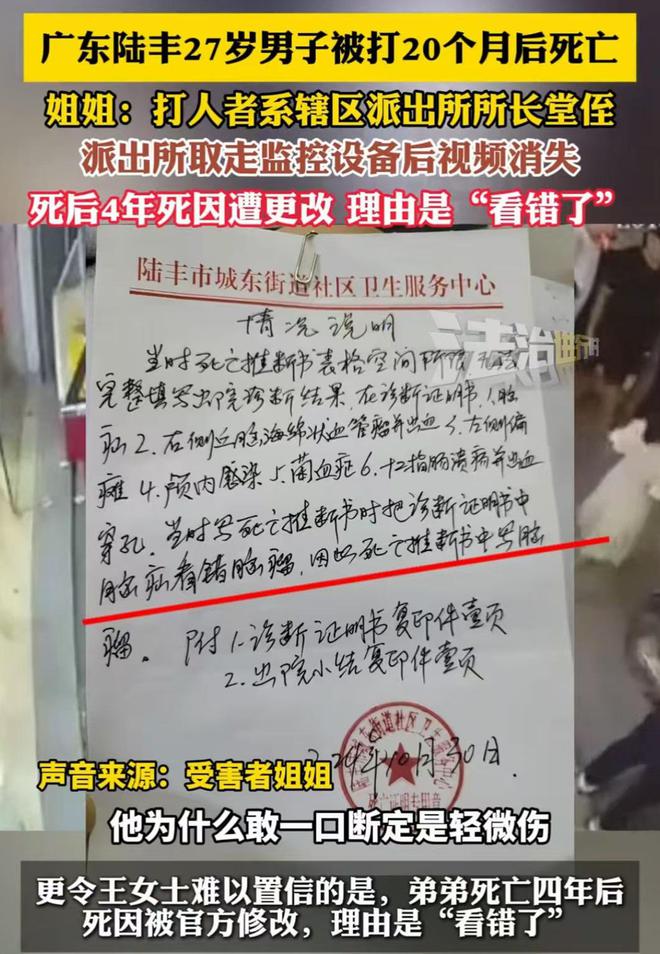 广东陆丰27岁男子被打20个月后死亡
姐姐：打人者系辖区派出所所长堂侄
派出所取走监控设备后视频消失
死后4年死因遭更改 理由是“看错了”
陆丰市城东街道社区卫生服务中心
法治
情况说明
当时死亡推断书表格空间所限 无法
完整填写出院诊断结果.在诊断证明书.1.脑
疝 2.右侧丘脑海绵状血管瘤并出血 3.左侧偏
瘫 4.颅内感染 5.菌血症 6.十二指肠溃疡并出血
穿孔.当时写死亡推断书时把诊断证明书中
脑疝看错脑瘤，因此死亡推断书中写脑
瘤。 附 1.诊断证明书复印件壹页
2.出院小结复印件壹页
街道社区卫生
10月30日.
死亡证明专用章
声音来源：受害者姐姐
他为什么敢一口断定是轻微伤
更令王女士难以置信的是，弟弟死亡四年后
死因被官方修改，理由是“看错了”